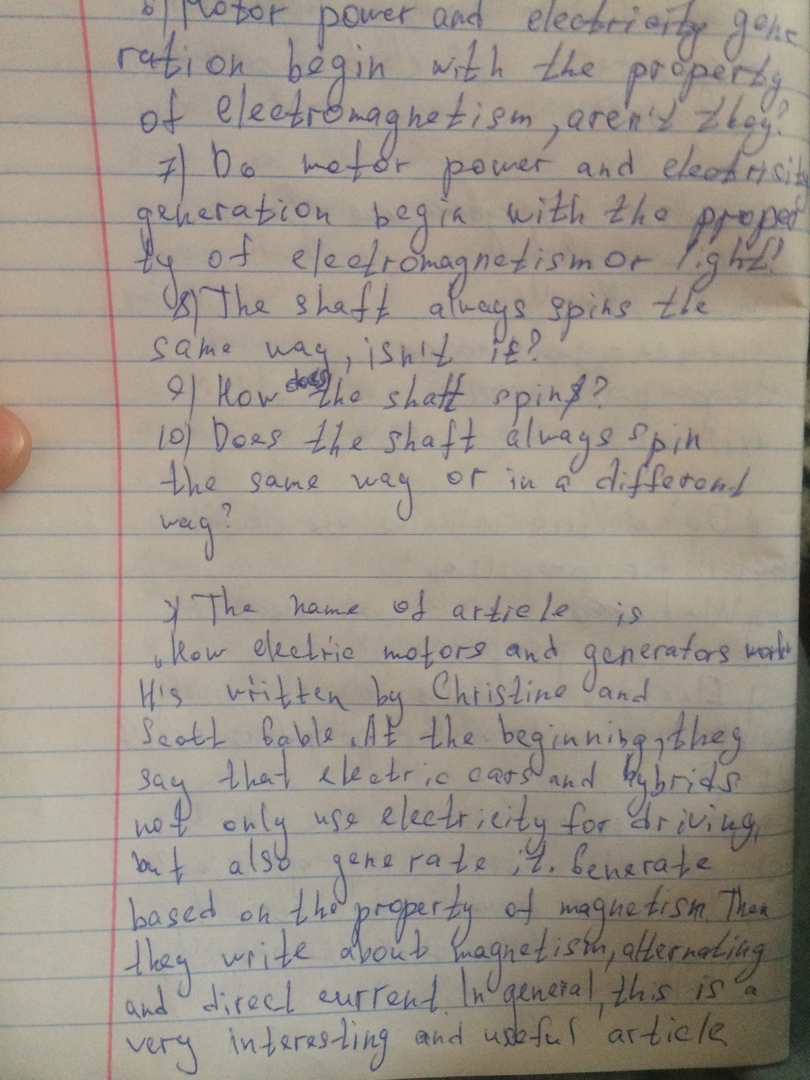 6) Motor power and electricity gene
ration begin with the property
of electromagnetism, aren't they?
7) Do motor power and electricity
generation begin with the proper
ty of electromagnetism or light?
8) The shaft always spins the
same way, isn't it?
9) How does the shaft spin?
10) Does the shaft always spin
the same way or in a different
way?
The name of article is
„How electric motors and generators work“
It's written by Christine and
Scott Gable. At the beginning, they
say that electric cars and hybrids
not only use electricity for driving,
but also generate it. Generate
based on the property of magnetism. Then
they write about magnetism, alternating
and direct current. In general, this is a
very interesting and useful article